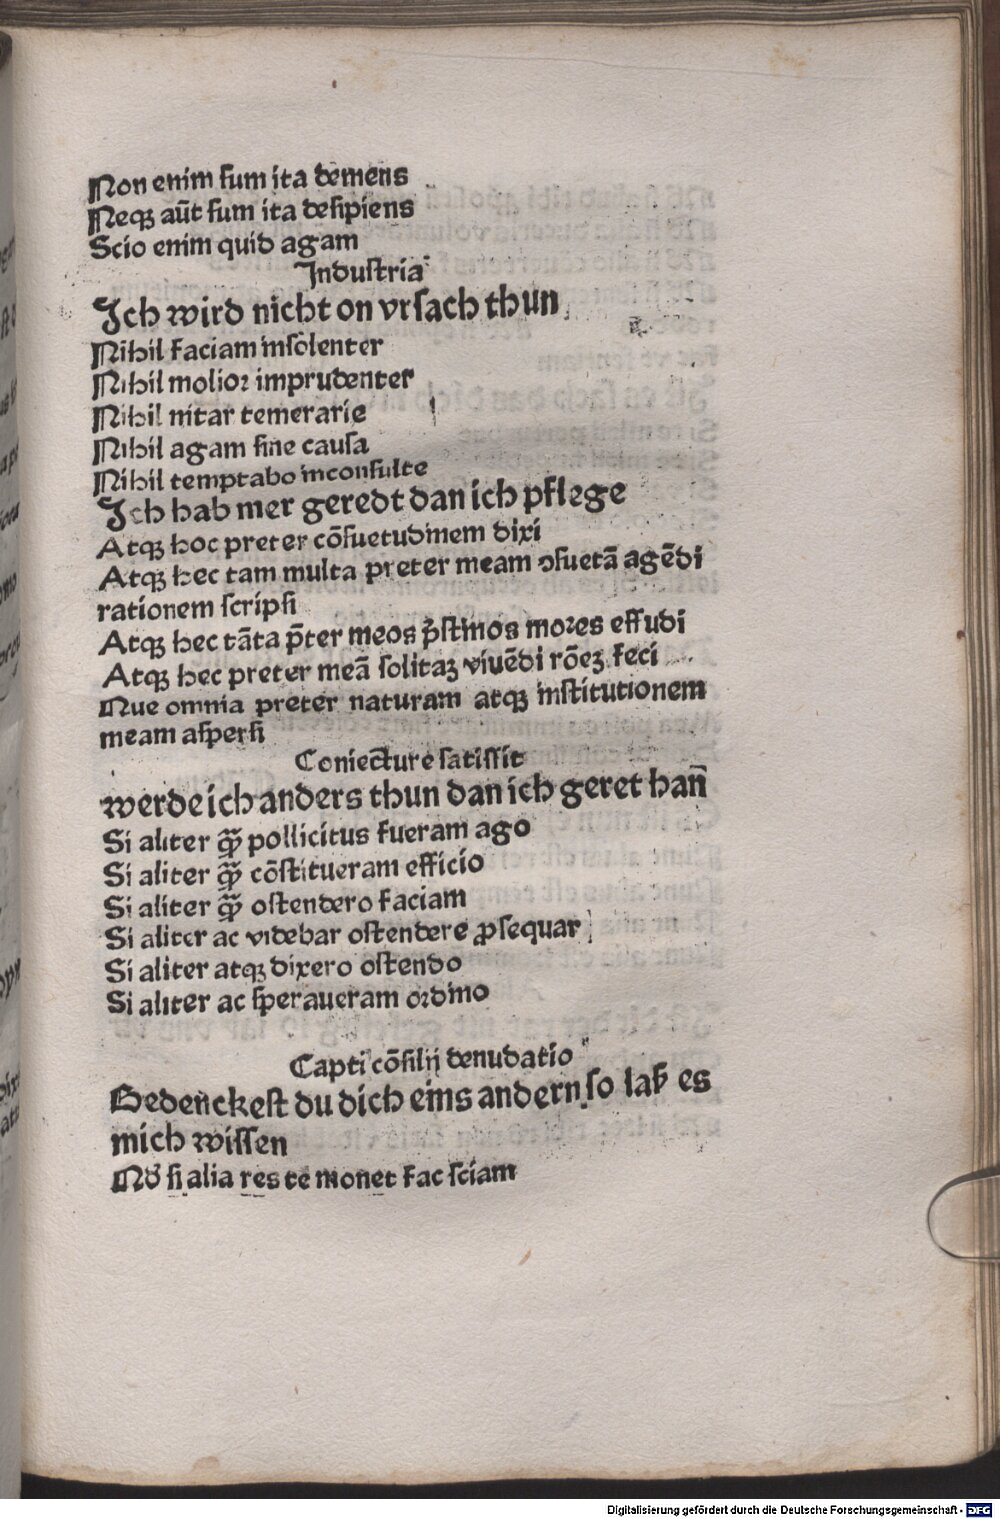 Non enim sum ita demens
Neqꝫ aūt sum ita desipiens
Scio enim quid agam
Industria
Ich wird nicht on vrsach thun
Nihil faciam insolenter
Nihil molior imprudenter
Nihil nitar temerarie
Nihil agam sine causa
Nihil temptabo inconsulte
Ich hab mer geredt dan ich pflege
Atqꝫ hoc preter cōsuetudinem dixi
Atqꝫ hec tam multa preter meam ꝯsuetā agēdi
rationem scripsi
Atqꝫ hec tāta p̄ter meos p̄stinos mores effudi
Atqꝫ hec preter meā solitaꝫ viuēdi rōeꝫ feci
Nue omnia preter naturam atqꝫ institutionem
meam aspersi
Coniecture satissit
werde ich anders thun dan ich geret han̄
Si aliter qꝫ̄ pollicitus fueram ago
Si aliter qꝫ̄ cōstitueram efficio
Si aliter qꝫ̄ ostendero faciam
Si aliter ac videbar ostendere ꝓsequar
Si aliter atqꝫ dixero ostendo
Si aliter ac speraueram ordino
Capti cōsilij denudatio
Bedenckest du dich eins andern so laß es
mich wissen
si alia res te monet fac sciam
Digitalisierung gefördert durch die Deutsche Forschungsgemeinschaft - DFG